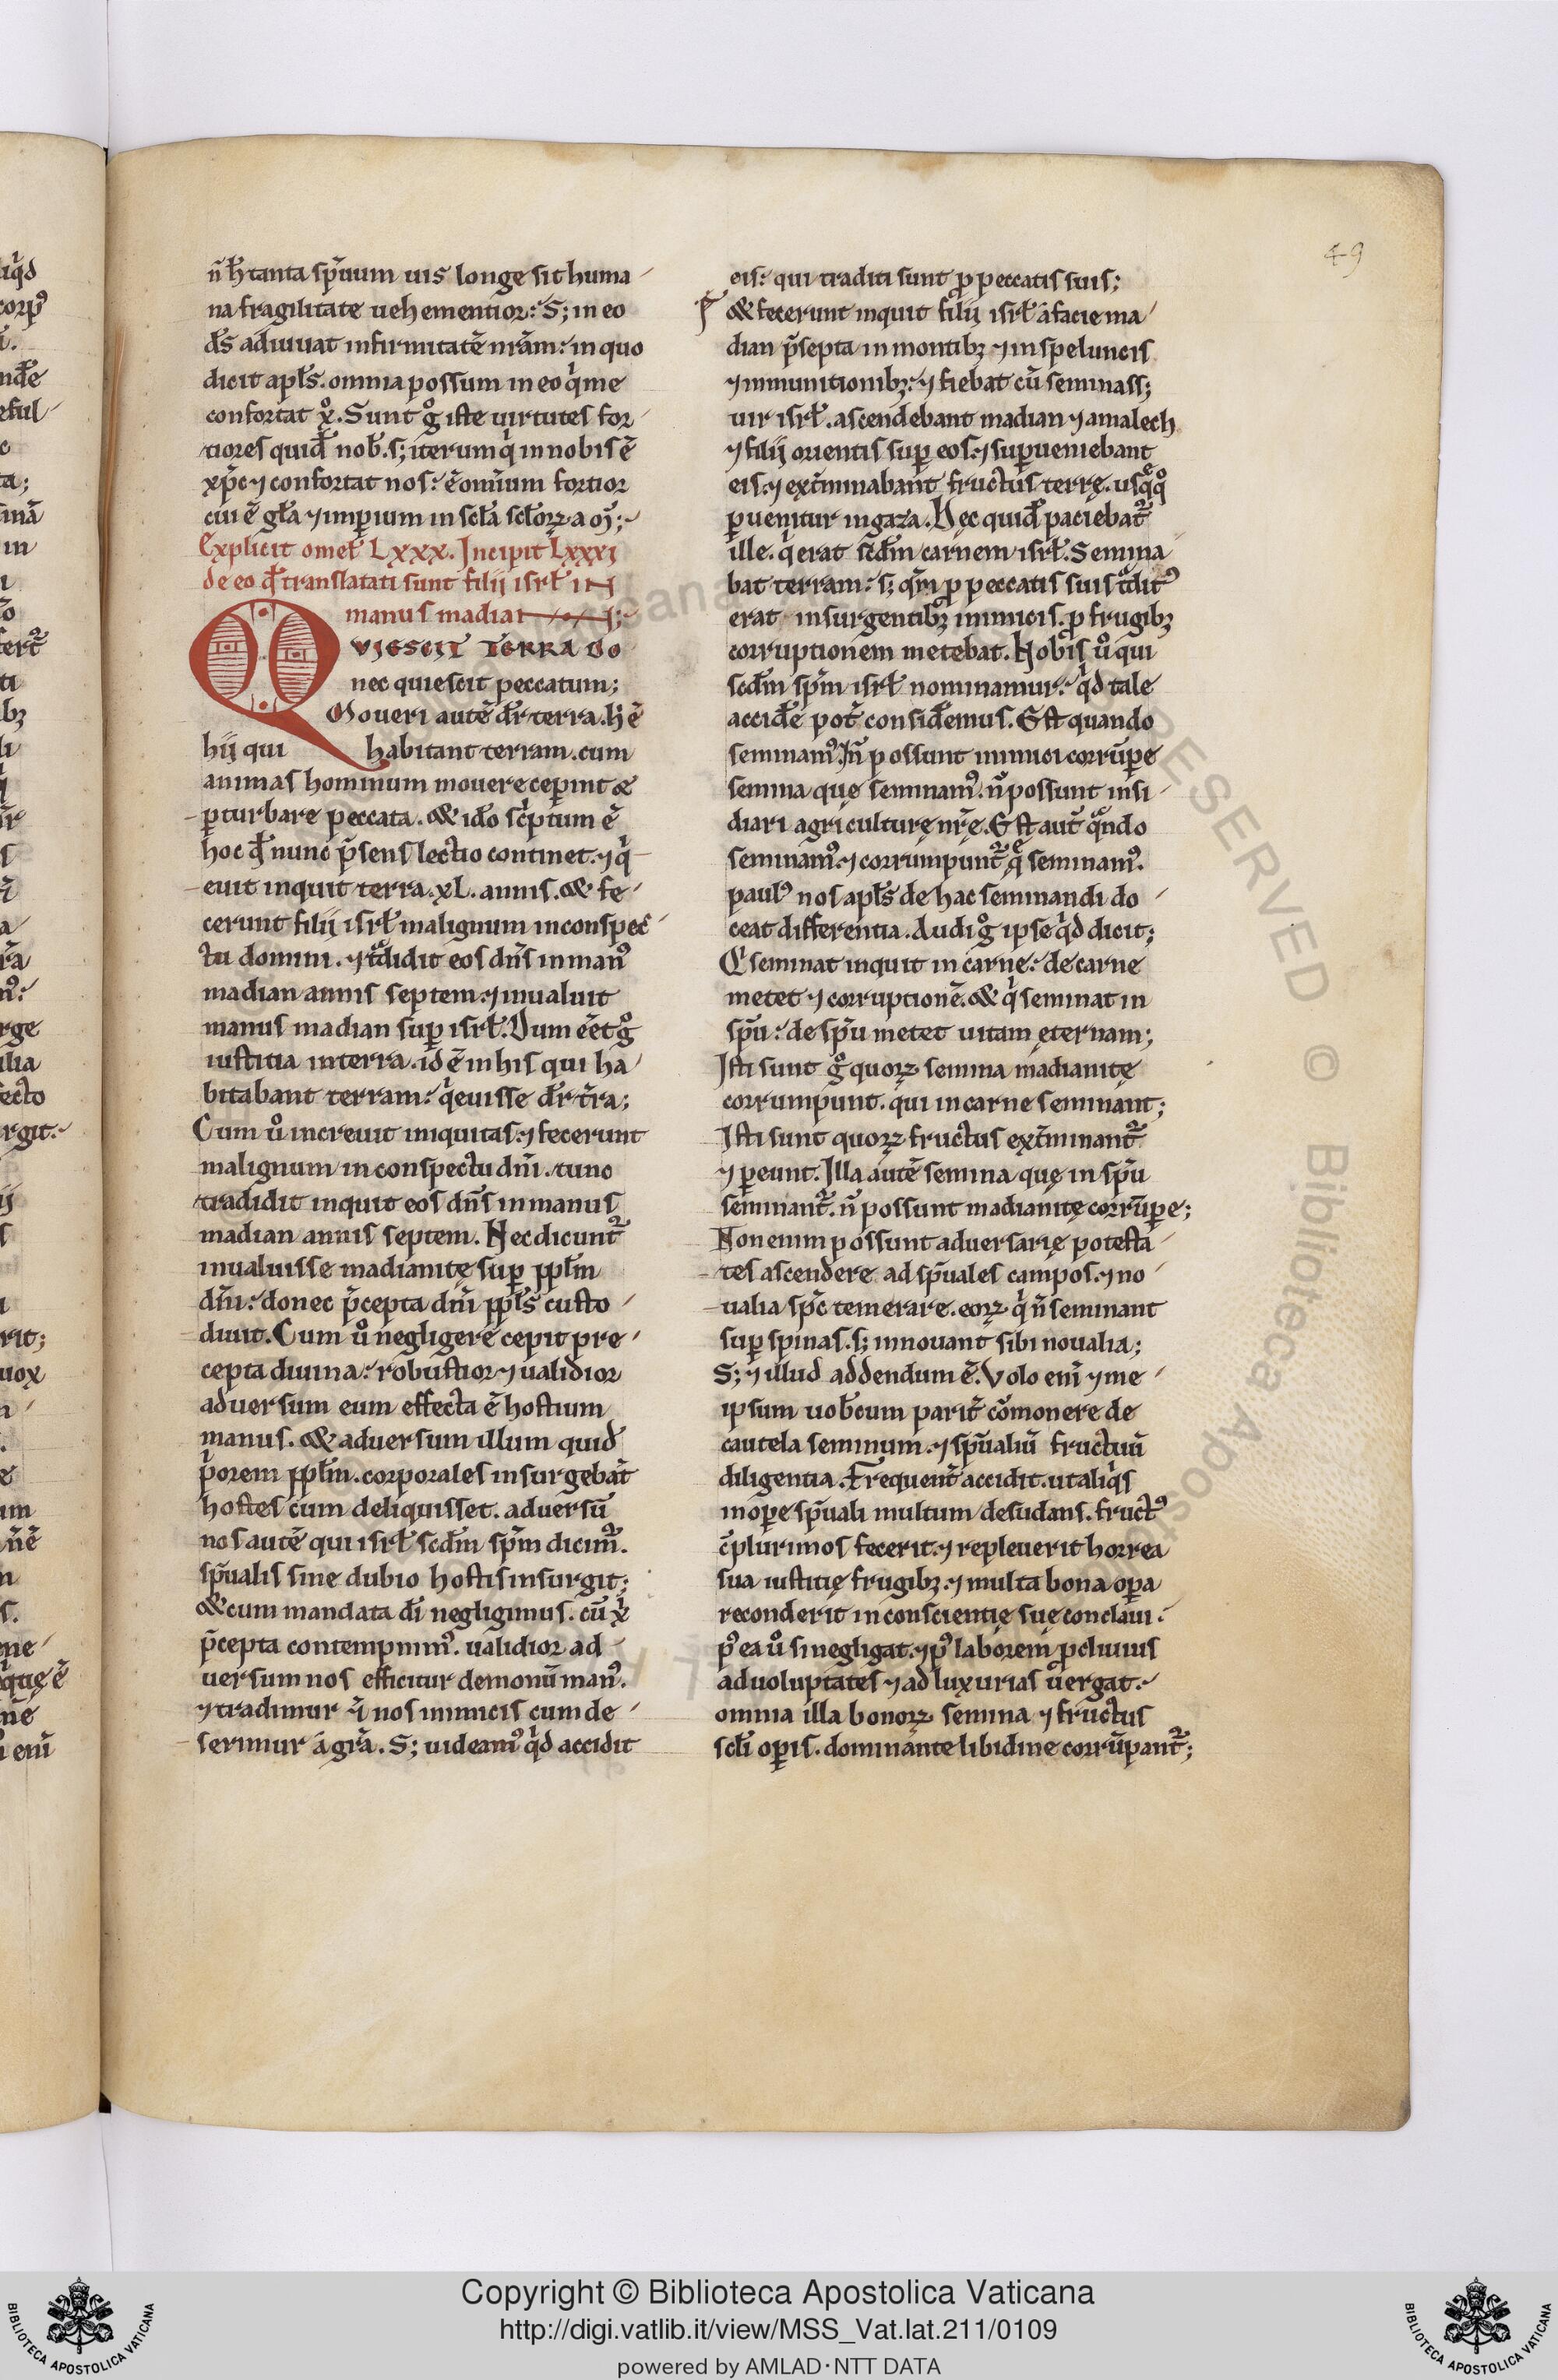 49
n̄ h̄ tanta sp̄uum uis longe sit huma
na fragilitate uehementior: S; in eo
d̄s adiuuat infirmitatē nr̄am: in quo
dicit apl̄s. omnia possum in eo q̇ me
confortat x̊. Sunt g̊ iste uirtutes for
tiores quid̄ nob̄. s; iterum q̇ in nobis ē
xp̄c ⁊ confortat nos: ē omnium fortior
cui ē gl̄a ⁊ imꝑium in scl̄a scl̄oꝝ a
Explicit omel̄ Lxxx. Incipit Lxxxi
de eo qđ translatati sunt filii isrl̄ in
manus madian;
QVIESCIT TERRA DO
nec quiescit peccatum;
Moueri autē dr̄ terra. h̄ ē
hij qui habitant terram. cum
animas hominum mouere ceperint &
ꝑturbare peccata. & ido sc̓ptum ē
hoc qđ nunc p̄sens lectio continet. ⁊ q̇
euit inquit terra. xL. annis. & fe
cerunt filii isrl̄ malignum in conspec
tu domini. ⁊ tͣdidit eos dn̄s in manꝰ
madian annis septem. ⁊ inualuit
manus madian suꝑ isrl̄. Dum eēt g̊
iustitia in terra. id ē in his qui ha
bitabant terram: q̇euisse dr̄ t̄ra;
Cum ů increuit iniquitas. ⁊ fecerunt
malignum in conspectu dn̄i. tunc
tradidit inquit eos dn̄s in manus
madian annis septem. Nec dicunt̄
inualuisse madianitę suꝑ ppl̄m
dn̄i: donec p̄cepta dn̄i ppl̄s custo
diuit. Cum ů negligere cepit pre
cepta diuina: robustior ⁊ ualidior
aduersum eum effecta ē hostium
manus. & aduersum illum quid̄
p̓orem ppl̄m. corporales insurgebat̄
hostes cum deliquisset. aduersū
nos autē qui isrl̄ scd̄m sp̄m dicim̄.
sp̄ualis sine dubio hostis insurgit;
& cum mandata dī negligimus. cū x̓
p̄cepta contempnimꝰ. ualidior ad
uersum nos efficitur demonū manꝰ.
⁊ tradimur ⁊ nos inimicis cum de
serimur a gr̄a. S; uideamꝰ q̇d accidit
eis: qui traditi sunt ꝓ peccatis suis;
& fecerunt inquit filii isrl̄ a facie ma
dian p̄septa in montibꝫ ⁊ in speluncis
⁊ in munitionibꝫ: ⁊ fiebat cū seminass;
uir isrl̄. ascendebant madian ⁊ amalech
⁊ filii orientis suꝑ eos. ⁊ suꝑueniebant
eis. ⁊ ext̄minabant fructus terrę. usqͣq̊
ꝑuenitur in gaza. Hec quid̄ paciebat̄
ille. q̇ erat scd̄m carnem isrl̄. Semina
bat terram: s; qm̄ ꝓ peccatis suis tͣditꝰ
erat insurgentibꝫ inimicis. ꝓ frugibꝫ
corruptionem metebat. Nobis ů qui
scd̄m sp̄m isrl̄ nominamur: q̇d tale
accid̄e pot̄ consid̄emus. Est quando
seminamꝰ. ⁊ n̄ possunt inimici corrūꝑe
semina quę seminamꝰ. n̄ possunt insi
diari agriculturę nr̄ę. Est aut̄ qͣndo
seminamꝰ. ⁊ corrumpunt̄ qͣ seminamꝰ.
paulꝰ nos apl̄s de hac seminandi do
ceat differentia. Audi g̊ ipse q̇d dicit;
Q̇ seminat inquit in carne: de carne
metet ⁊ corruptionē. & q̇ seminat in
sp̄u: de sp̄u metet uitam ęternam;
Isti sunt g̊ quoꝝ semina madianitę
corrumpunt. qui in carne seminant;
Isti sunt quoꝝ fructus ext̄minant̄
⁊ ꝑeunt. Illa autē semina quę in sp̄u
seminant̄. n̄ possunt madianitę corrūꝑe;
Non enim possunt aduersarię potesta
tes ascendere ad sp̄uales campos. ⁊ no
ualia sp̄c temerare. eoꝝ q̇ n̄ seminant
suꝑ spinas. s; innouant sibi noualia;
S; ⁊ illud addendum ē. Volo enī ⁊ me
ipsum uob̄cum parit̄ cōmonere de
cautela seminum. ⁊ sp̄ualiū fructuū
diligentia. Frequent̄ accidit. ut aliq̇s
in oꝑe sp̄uali multum desudans. fructꝰ
cplurimos fecerit. ⁊ repleuerit horrea
sua iustitię frugibꝫ. ⁊ multa bona oꝑa
reconderit in conscientię suę conclaui.
pꝰ ea ů si negligat. ⁊ pꝰ laborem ꝓcliuius
ad uoluptates ⁊ ad luxurias uergat.
omnia illa bonoꝝ semina ⁊ fructus
scī oꝑis. dominante libidine corrūpant̄;
Copyright © Biblioteca Apostolica Vaticana
http://digi.vatlib.it/view/MSS_Vat.lat.211/0109
powered by AMLAD·NTT DATA
BIBLIOTECA APOSTOLICA VATICANA
BIBLIOTECA APOSTOLICA VATICANA